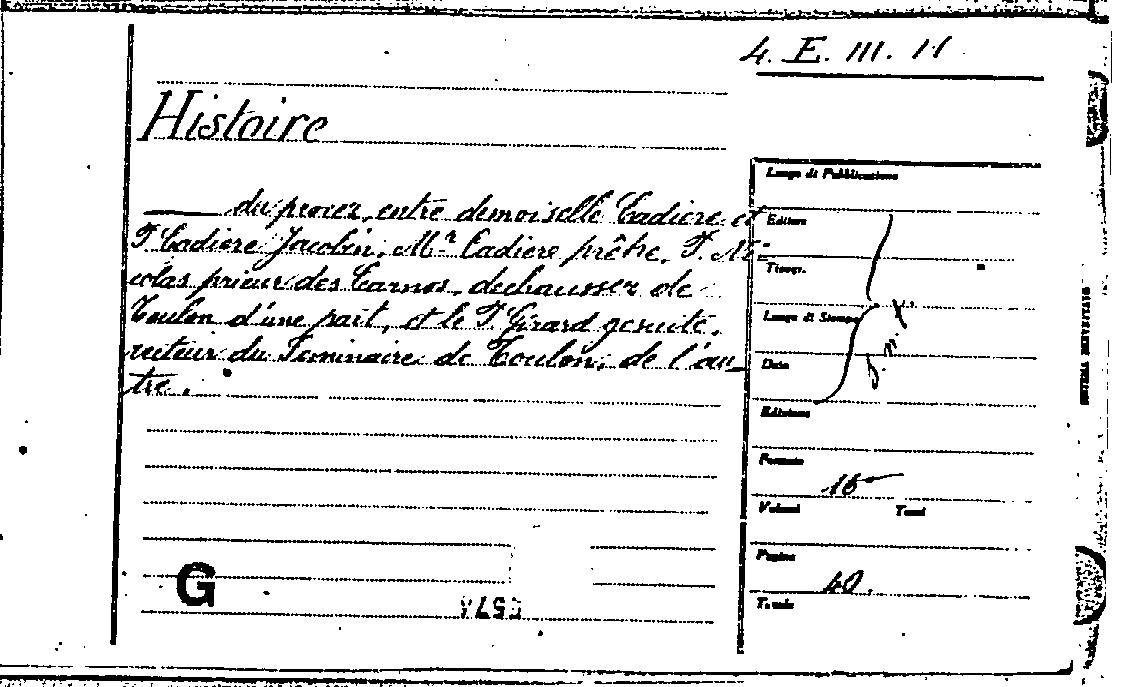 4. E. III. 11
Histoire
du procez, entre demoiselle Cadiere et
P. Cadiere Jacobin, Mr. Cadiere prêtre, P. Ni-
colas prieur des Carmes dechaussez de
Toulon d'une part, et le P. Girard gesuite,
recteur du Seminaire de Toulon, de l'au-
tre.
Luogo di Pubblicazione
Editore
Tipogr.
Luogo di Stampa
Data
Edizione
Formato
16
Volumi Tomi
Pagine
40.
Tavole
G